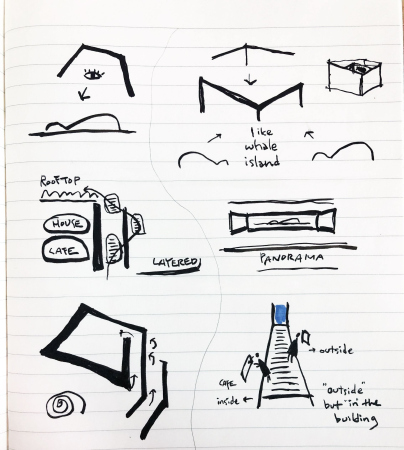 like
whale
island
ROOFTOP
HOUSE
CAFE
LAYERED
PANORAMA
→ outside
CAFE
inside ←
"outside"
but "in" the
building